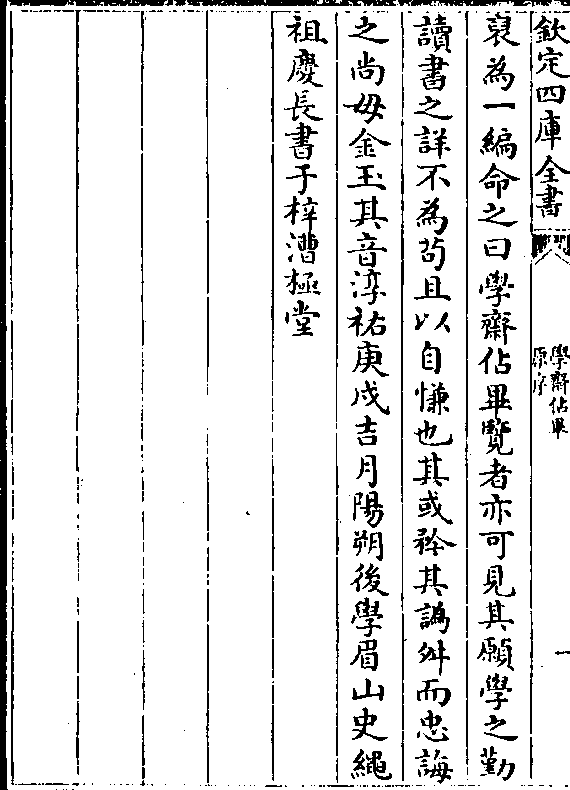 欽定四庫全書
學齋佔畢
原序
一
裒為一編命之曰學齋佔畢覽者亦可見其願學之勤
讀書之詳不為茍且以自慊也其或矜其譌舛而忠誨
之尚毋金玉其音淳祐庚戌吉月陽朔後學眉山史繩
祖慶長書于梓漕極堂